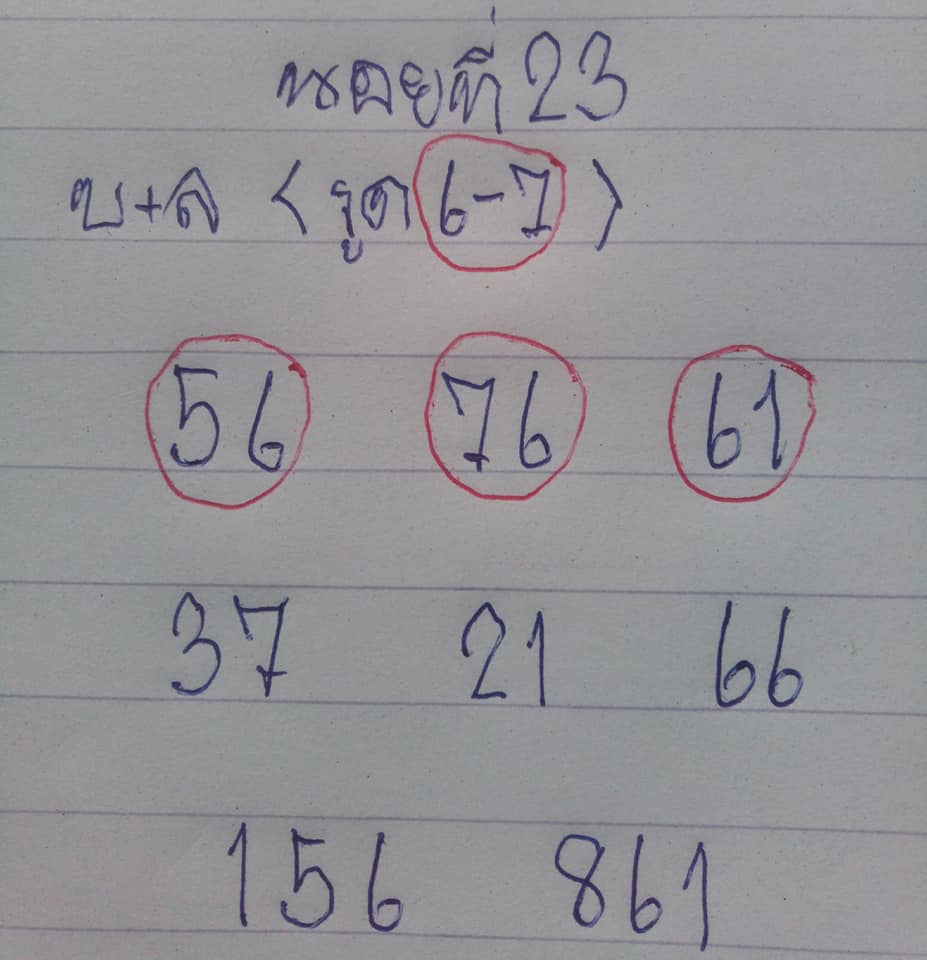 หอยที่ 23
บ+ล < รูด 6-7 >
56 76 61
37 21 66
156 861